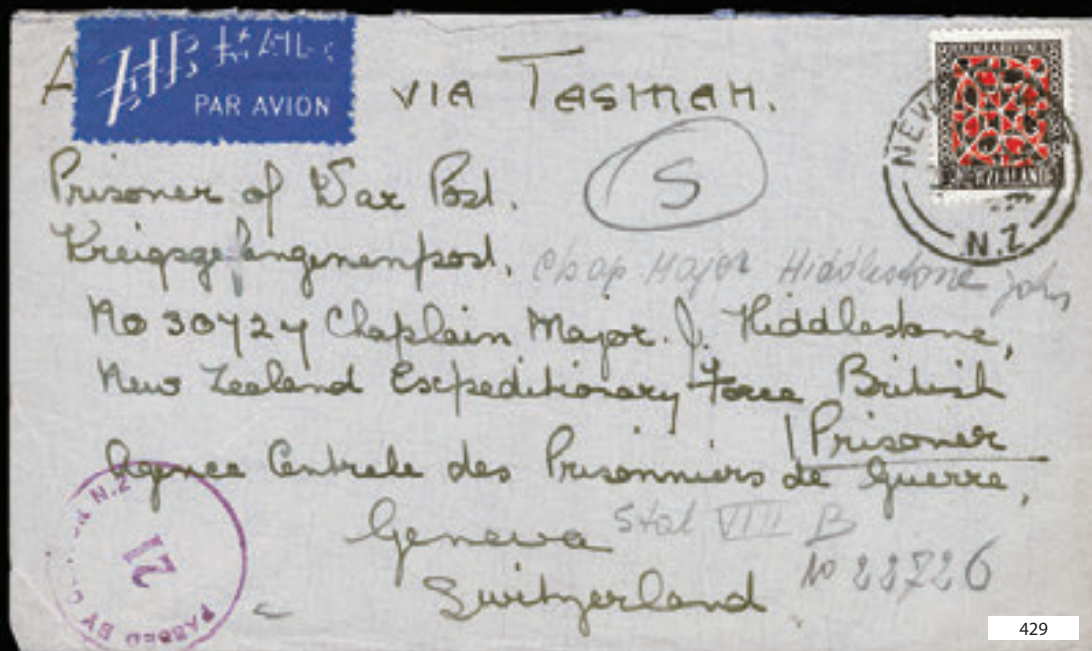 AIR MAIL
PAR AVION
VIA TASMAN.
NEW
N.Z
S
Prisoner of War Post.
Kreigsgefangenenpost.
Chap Major Hiddlestone John
No 30727 Chaplain Major. J. Hiddlestone,
New Zealand Expeditionary Force British
Prisoner
Agence Centrale des Prisonniers de Guerre,
Geneva
Stal VIII B
Switzerland
No 23726
PASSED BY N.Z
21
429